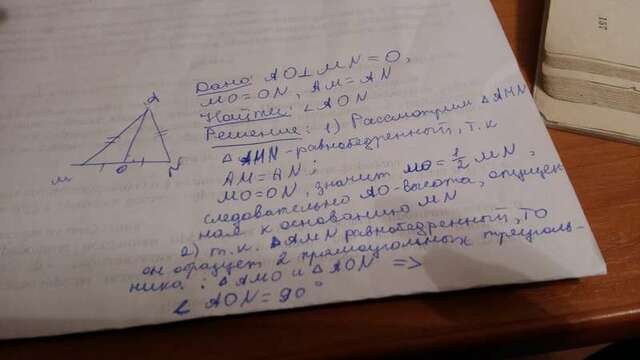 Дано: AO⊥MN=O,
MO=ON, AM=AN
Найти: ∠AON
Решение: 1) Рассмотрим △AMN
△AMN-равнобедренный, т.к
AM=AN;
MO=ON, значит MO=1/2 MN,
следовательно AO-высота, опущен
ная к основанию MN
2) т.к. △AMN равнобедренный, то
он образует 2 прямоугольных треуголь-
ника: △AMO и △AON =>
∠AON=90°
A
M
O
N
151